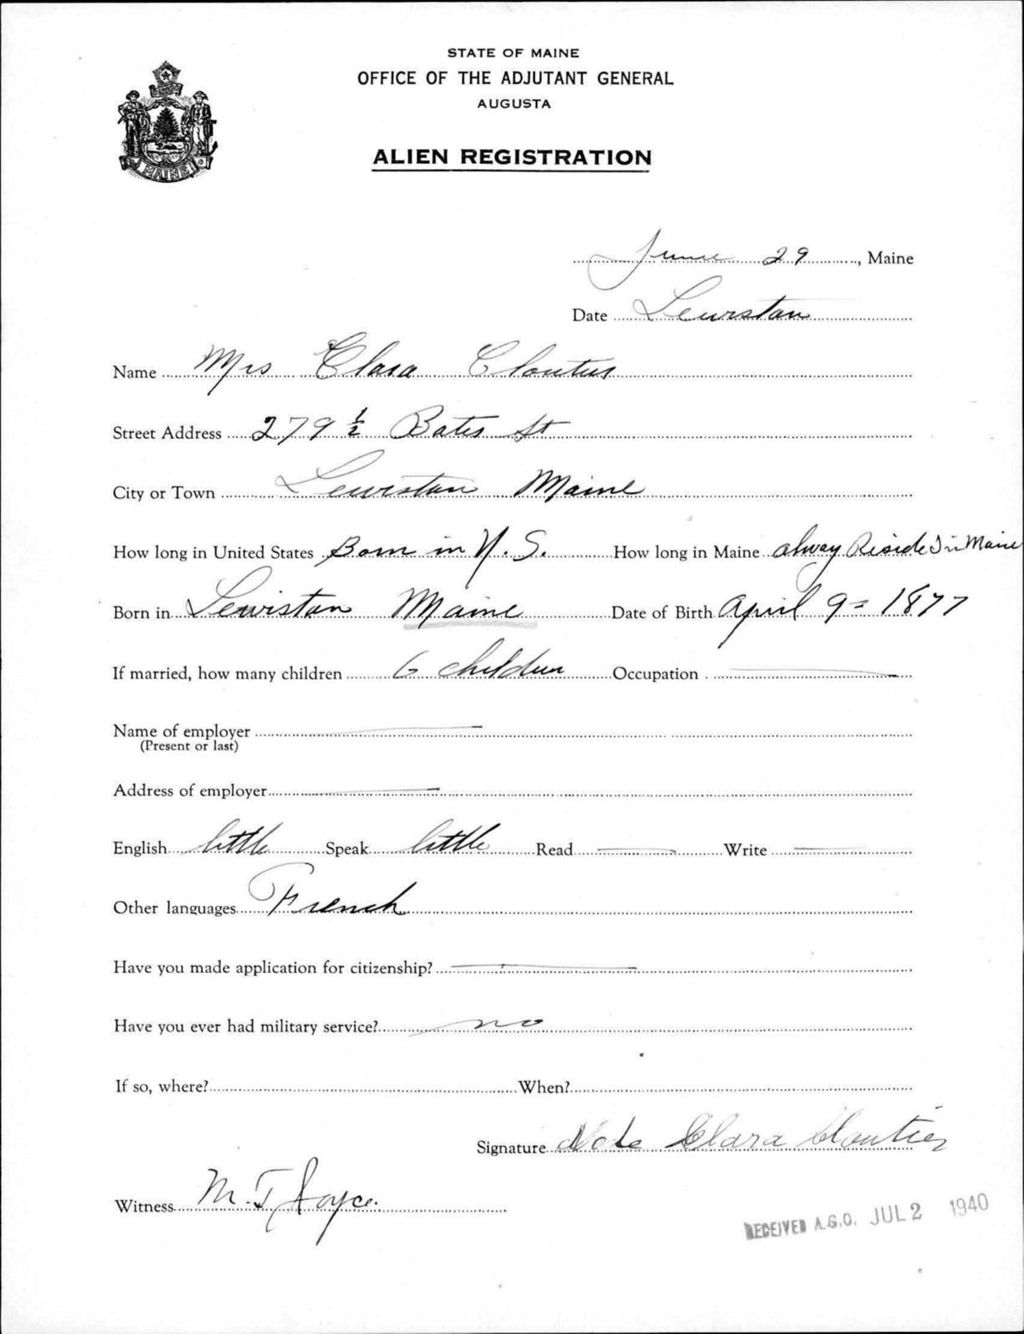 STATE OF MAINE
OFFICE OF THE ADJUTANT GENERAL
AUGUSTA
ALIEN REGISTRATION
MAINE
June 29, Maine
Date Lewiston
Name Mrs Clara Cloutier
Street Address 279 1/2 Bates St
City or Town Lewiston Maine
How long in United States Born in U.S. How long in Maine alway Reside In Maine
Born in Lewiston Maine Date of Birth April 9 = 1877
If married, how many children 6 children Occupation
Name of employer
(Present or last)
Address of employer
English little Speak little Read Write
Other languages French
Have you made application for citizenship?
Have you ever had military service? no
If so, where? When?
Signature Clara Cloutier
Witness M. T. Joyce.
RECEIVED A.G.O. JUL 2 1940